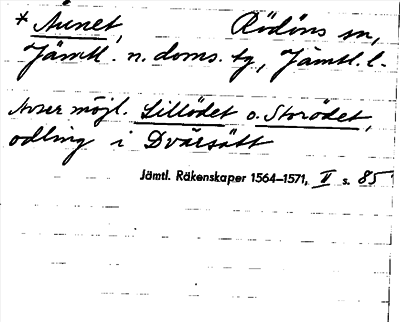 * Aunet, Rödöns sn,
Jämtl. n. doms. tg, Jämtl. l.
Avser möjl. Lillödet o. Storödet,
odling i Dvärsätt
Jämtl. Räkenskaper 1564–1571, V s. 85